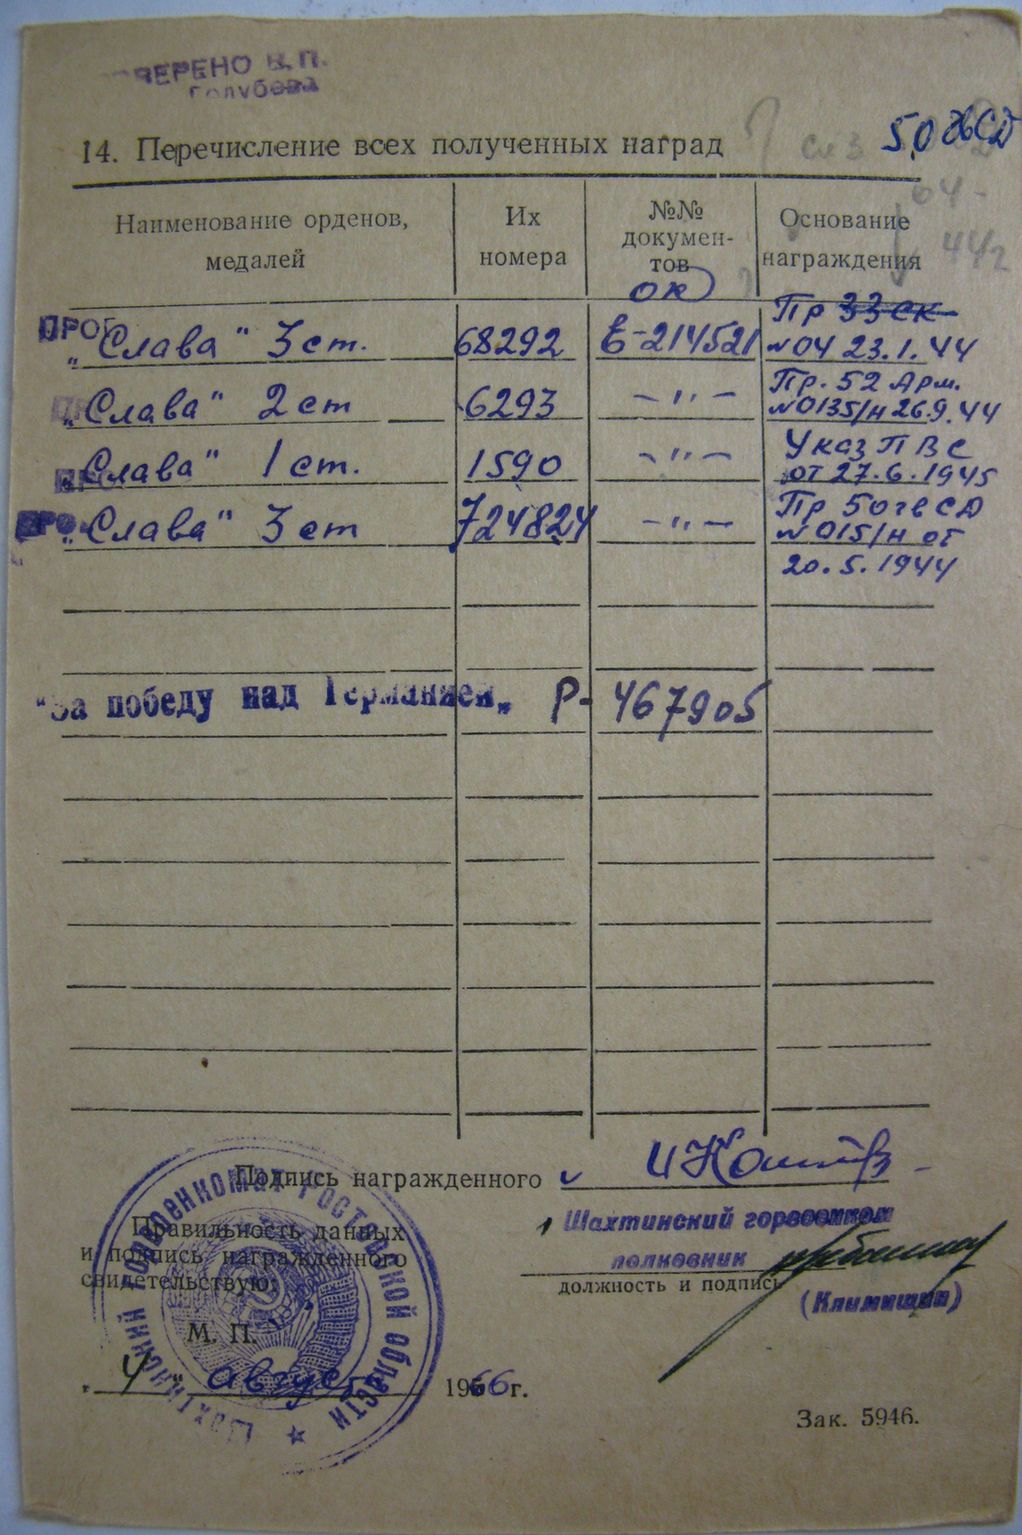 ВЕРЕНО В.П.
Голубева
14. Перечисление всех полученных наград
50 гвСД
Наименование орденов, медалей
Их номера
№№ докумен-
тов
Основание награждения
ок
Пр 33 СК
ПРОВ
„Слава" 3 ст. 68292 Е-214521 №04 23.1.44
Пр. 52 Арм.
„Слава" 2 ст 6293 –"– №0135/н 26.9.44
Указ ПВС
„Слава" 1 ст. 1590 –"– от 27.6.1945
Пр 50 гв СД
„Слава" 3 ст 724824 –"– №015/н от
20.5.1944
"За победу над Германией„ Р- 467905
Подпись награжденного
Правильность данных
и подпись награжденного
свидетельствую:
Шахтинский горвоенком
полковник
должность и подпись
(Климишин)
М. П.
„4" август 1966 г.
Зак. 5946.
Шахтинский горвоенкомат Ростовской области